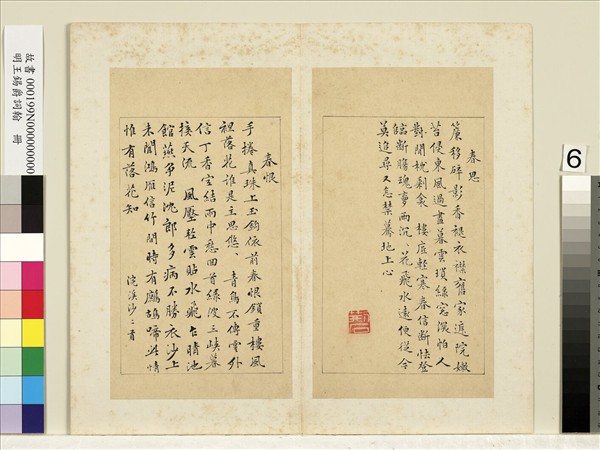 春思
簾移碎影香褪衣襟舊家庭院嫩
苔侵東風過盡暮雲鎖綠窓深怕人
對閒枕剩衾 樓底輕寒春信斷怯登
臨斷腸魂夢兩沉〻花飛水遠便從今
莫追尋又怎禁驀地上心
春恨
手捲真珠上玉鉤依前春恨鎖重樓風
裡落花誰是主思悠〻 青鳥不傳雲外
信丁香空結雨中愁回首綠波三峽暮
接天流 風壓輕雲貼水飛乍晴池
館燕爭泥沈郎多病不勝衣沙上
未聞鴻雁信竹間時有鷓鴣啼此情
惟有落花知 浣溪沙二首
故書 000199N000000000
明王錫爵詞翰 冊
6